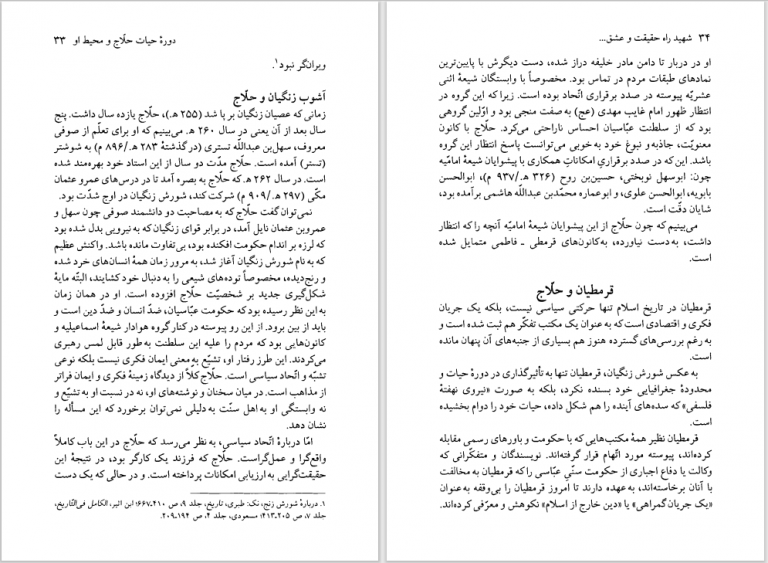 دورهٔ حیات حلّاج و محیط او ۳۳
ویران‌گر نبود۱.
آشوب زنگیان و حلّاج
زمانی که عصیان زنگیان بر پا شد (۲۵۵ هـ.)، حلّاج یازده سال داشت. پنج
سال بعد از آن یعنی در سال ۲۶۰ هـ. می‌بینیم که او برای تعلّم از صوفی
معروف، سهل‌بن عبداللّه تستری (درگذشتهٔ ۲۸۳ هـ./۸۹۶ م) به شوشتر
(تستر) آمده است. حلّاج مدت دو سال از این استاد خود بهره‌مند شده
است. در سال ۲۶۲ هـ. که حلّاج به بصره آمد تا در درس‌های عمرو عثمان
مکّی (۲۹۷ هـ./۹۰۹ م) شرکت کند، شورش زنگیان در اوج شدّت بود.
نمی‌توان گفت حلّاج که به مصاحبت دو دانشمند صوفی چون سهل و
عمروبن عثمان نایل آمد، در برابر قوای زنگیان که به نیرویی بدل شده بود
که لرزه بر اندام حکومت افکنده بود، بی‌تفاوت مانده باشد. واکنش عظیم
که به نام شورش زنگیان آغاز شد، به مرور زمان همهٔ انسان‌های خرد شده
و رنج‌دیده، مخصوصاً توده‌های شیعی را به دنبال خود کشایند، البتّه مایهٔ
شکل‌گیری جدید بر شخصیّت حلّاج افزوده است. او در همان زمان
به این نظر رسیده بود که حکومت عبّاسیان، ضدّ انسان و ضدّ دین است و
باید از بین برود. از این رو پیوسته در کنار گروه هوادار شیعهٔ اسماعیلیه و
کانون‌هایی بود که مردم را علیه این سلطنت به‌طور قابل لمس رهبری
می‌کردند. این طرز رفتار او، تشیّع به معنی ایمان فکری نیست بلکه نوعی
تشبّه و اتّحاد سیاسی است. حلّاج کلاً از دیدگاه زمینهٔ فکری و ایمان فراتر
از مذاهب است. در میان سخنان و نوشته‌های او، نه در نسبت او به تشیّع و
نه وابستگی او به اهل سنّت به دلیلی نمی‌توان برخورد که این مسأله را
نشان دهد.
امّا دربارهٔ اتّحاد سیاسی، به نظر می‌رسد که حلّاج در این باب کاملاً
واقع‌گرا و عمل‌گراست. حلّاج که فرزند یک کارگر بود، در نتیجهٔ این
حقیقت‌گرایی به ارزیابی امکانات پرداخته است. و در حالی که یک دست
۱. دربارهٔ شورش زنج، نک: طبری، تاریخ، جلد ۹، ص ۴۱۰ـ۶۶۷؛ ابن اثیر، الکامل فی‌التّاریخ،
جلد ۷، ص ۲۰۵ـ۴۱۳؛ مسعودی، جلد ۴، ص ۱۹۴ـ۲۰۹.
۳۴ شهید راه حقیقت و عشق...
او در دربار تا دامن مادر خلیفه دراز شده، دست دیگرش با پایین‌ترین
نمادهای طبقات مردم در تماس بود. مخصوصاً با وابستگان شیعهٔ اثنی
عشریّه پیوسته در صدد برقراری اتّحاد بوده است. زیرا که این گروه در
انتظار ظهور امام غایب مهدی (عج) به صفت منجی بود و اوّلین گروهی
بود که از سلطنت عبّاسیان احساس ناراحتی می‌کرد. حلّاج با کانون
معنویّت، جاذبه و نبوغ خود به خوبی می‌توانست پاسخ انتظار این گروه
باشد. این که در صدد برقراریِ امکاناتِ همکاری با پیشوایان شیعهٔ امامیّه
چون: ابوسهل نوبختی، حسین‌بن روح (۳۲۶ هـ./۹۳۷ م)، ابوالحسن
بابویه، ابوالحسن علوی، و ابوعماره محمّدبن عبداللّه هاشمی برآمده بود،
شایان دقّت است.
می‌بینیم که چون حلّاج از این پیشوایان شیعهٔ امامیّه آنچه را که انتظار
داشت، به‌دست نیاورده، به‌کانون‌های قرمطی ـ فاطمی متمایل شده
است.
قرمطیان و حلّاج
قرمطیان در تاریخ اسلام تنها حرکتی سیاسی نیست، بلکه یک جریان
فکری و اقتصادی است که به عنوان یک مکتب تفکّر هم ثبت شده است و
به رغم بررسی‌های گسترده هنوز هم بسیاری از جنبه‌های آن پنهان مانده
است.
به عکس شورش زنگیان، قرمطیان تنها به تأثیرگذاری در دورهٔ حیات و
محدودهٔ جغرافیایی خود بسنده نکرد، بلکه به صورت «نیروی نهفتهٔ
فلسفی» که سده‌های آینده را هم شکل داده، حیات خود را دوام بخشیده
است.
قرمطیان نظیر همهٔ مکتب‌هایی که با حکومت و باورهای رسمی مقابله
کرده‌اند، پیوسته مورد اتّهام قرار گرفته‌اند. نویسندگان و متفکّرانی که
وکالت یا دفاع اجباری از حکومت سنّیِ عبّاسی را که قرمطیان به مخالفت
با آنان برخاسته‌اند، به عهده دارند تا امروز قرمطیان را بی‌وقفه به عنوان
«یک جریان گمراهی» یا «دین خارج از اسلام» نکوهش و معرّفی کرده‌اند.